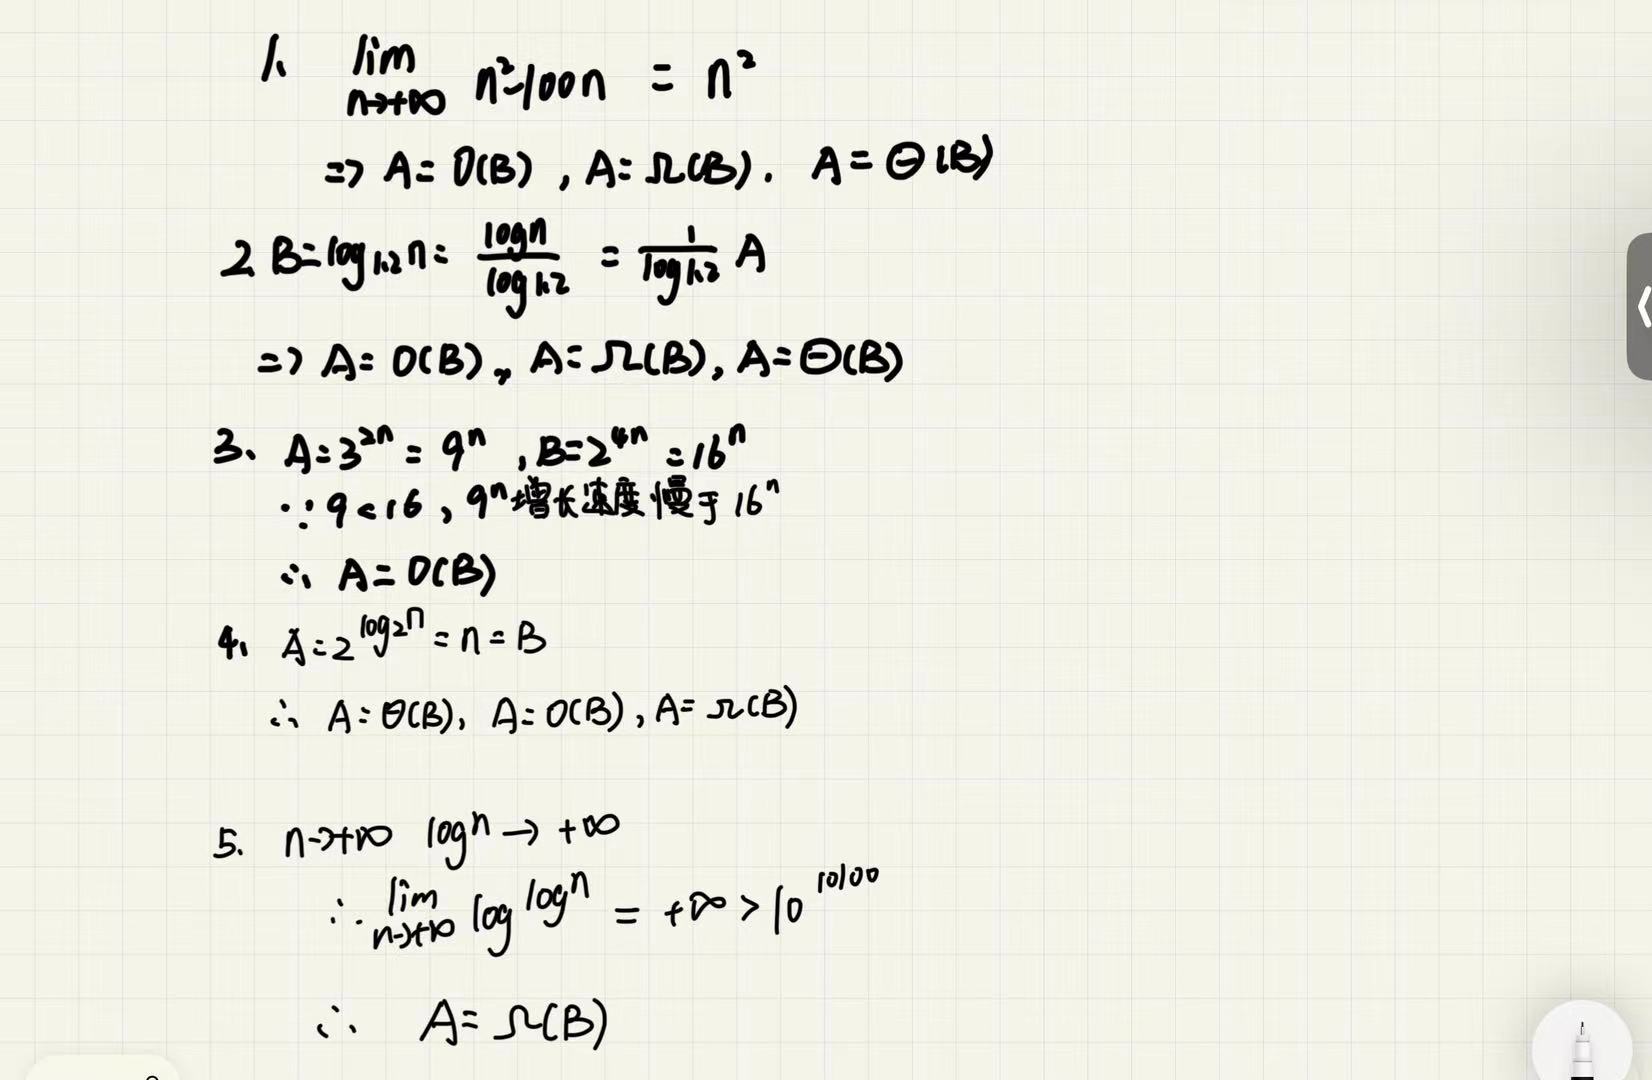 1. lim n→+∞ n²-100n = n²
=> A=O(B), A=Ω(B). A=Θ(B)
2. B=log₁.₂n= logn/log1.2 = 1/log1.2 A
=> A=O(B), A=Ω(B), A=Θ(B)
3、A=3²ⁿ=9ⁿ, B=2⁴ⁿ=16ⁿ
∵9<16, 9ⁿ增长速度慢于16ⁿ
∴ A=O(B)
4、A=2^log₂n=n=B
∴ A=Θ(B), A=O(B), A=Ω(B)
5. n→+∞ logn→+∞
∴ lim n→+∞ log logn = +∞ > 10^10100
∴ A=Ω(B)